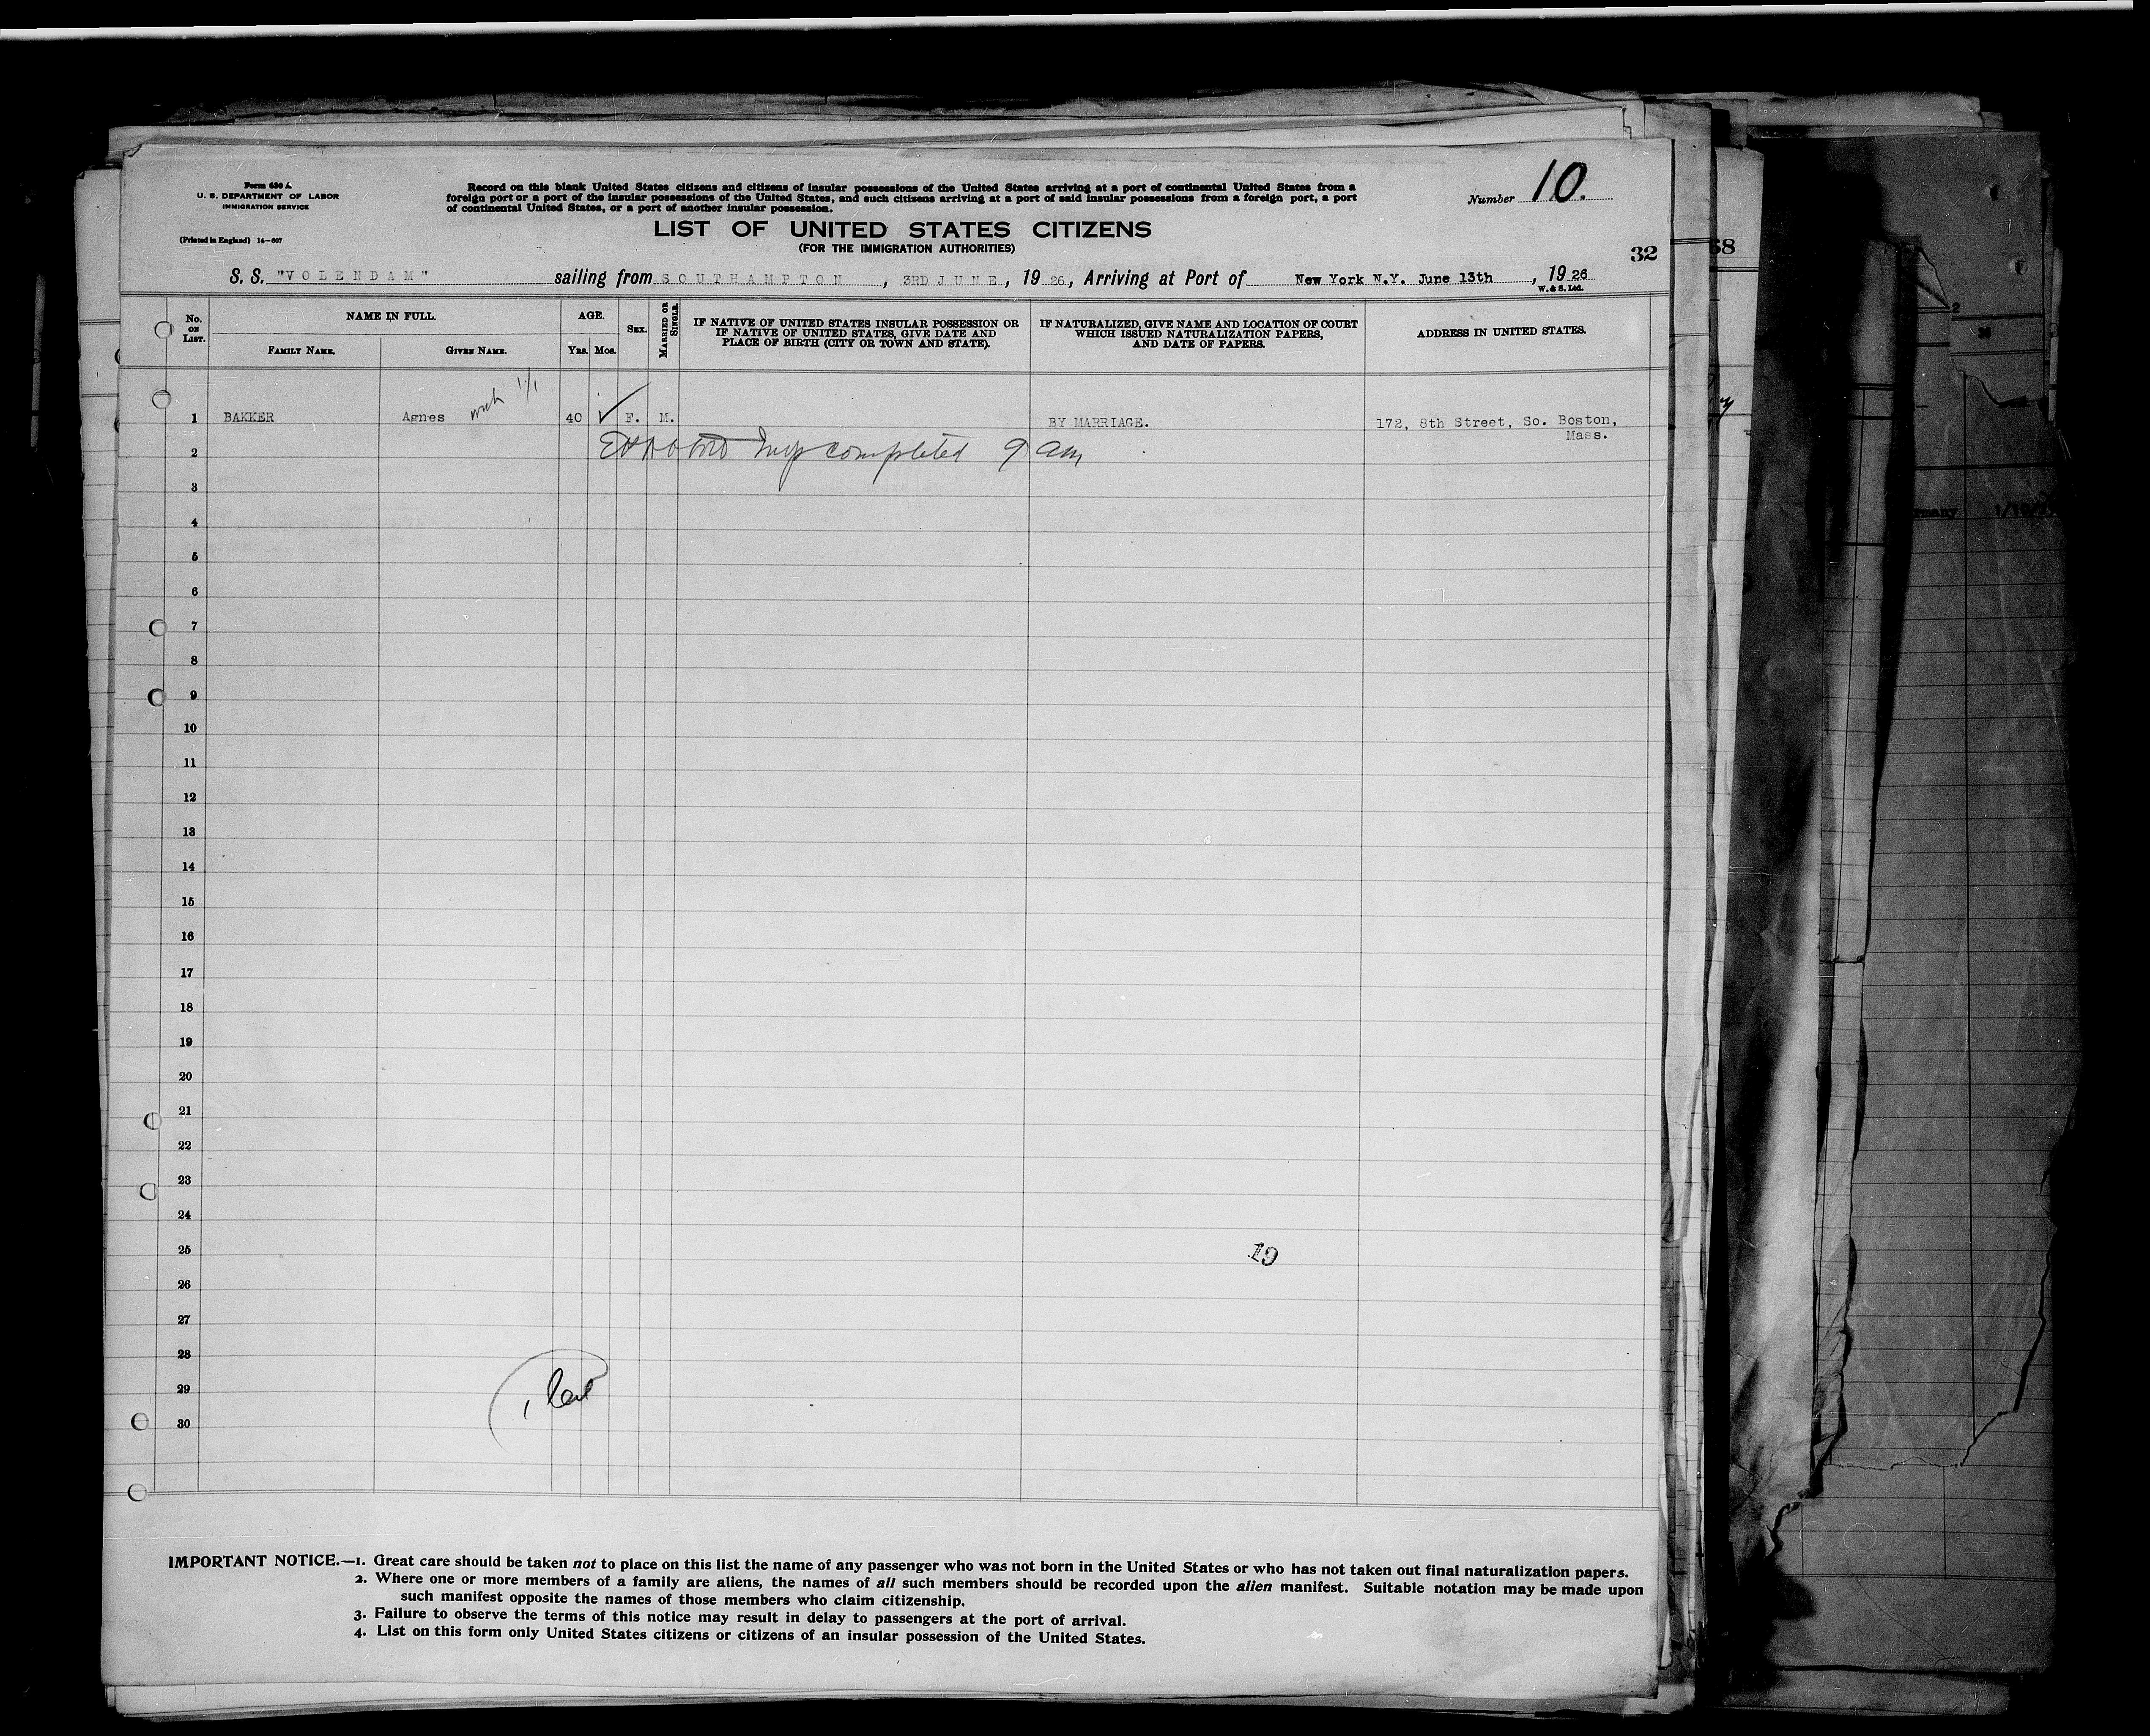 Form 630 A
U. S. DEPARTMENT OF LABOR
IMMIGRATION SERVICE
(Printed in England) 14—507
Record on this blank United States citizens and citizens of insular possessions of the United States arriving at a port of continental United States from a
foreign port or a port of the insular possessions of the United States, and such citizens arriving at a port of said insular possessions from a foreign port, a port
of continental United States, or a port of another insular possession.
Number 10.
LIST OF UNITED STATES CITIZENS
(FOR THE IMMIGRATION AUTHORITIES)
32
68
S. S. "VOLENDAM" sailing from SOUTHAMPTON, 3RD JUNE, 19 26, Arriving at Port of New York N.Y. June 13th, 19 26
W. & S. Ltd.
No. ON LIST.
NAME IN FULL.
FAMILY NAME.
GIVEN NAME.
AGE.
YRS. MOS.
SEX.
MARRIED OR SINGLE.
IF NATIVE OF UNITED STATES INSULAR POSSESSION OR
IF NATIVE OF UNITED STATES, GIVE DATE AND
PLACE OF BIRTH (CITY OR TOWN AND STATE).
IF NATURALIZED, GIVE NAME AND LOCATION OF COURT
WHICH ISSUED NATURALIZATION PAPERS,
AND DATE OF PAPERS.
ADDRESS IN UNITED STATES.
1 BAKKER Agnes with 1/1 40 F. M. BY MARRIAGE. 172, 8th Street, So. Boston,
Mass.
2 completed 9 am
3
4
5
6
7
8
9
10
11
12
13
14
15
16
17
18
19
20
21
22
23
24
25
19
26
27
28
29
30
IMPORTANT NOTICE.—1. Great care should be taken not to place on this list the name of any passenger who was not born in the United States or who has not taken out final naturalization papers.
2. Where one or more members of a family are aliens, the names of all such members should be recorded upon the alien manifest. Suitable notation may be made upon
such manifest opposite the names of those members who claim citizenship.
3. Failure to observe the terms of this notice may result in delay to passengers at the port of arrival.
4. List on this form only United States citizens or citizens of an insular possession of the United States.